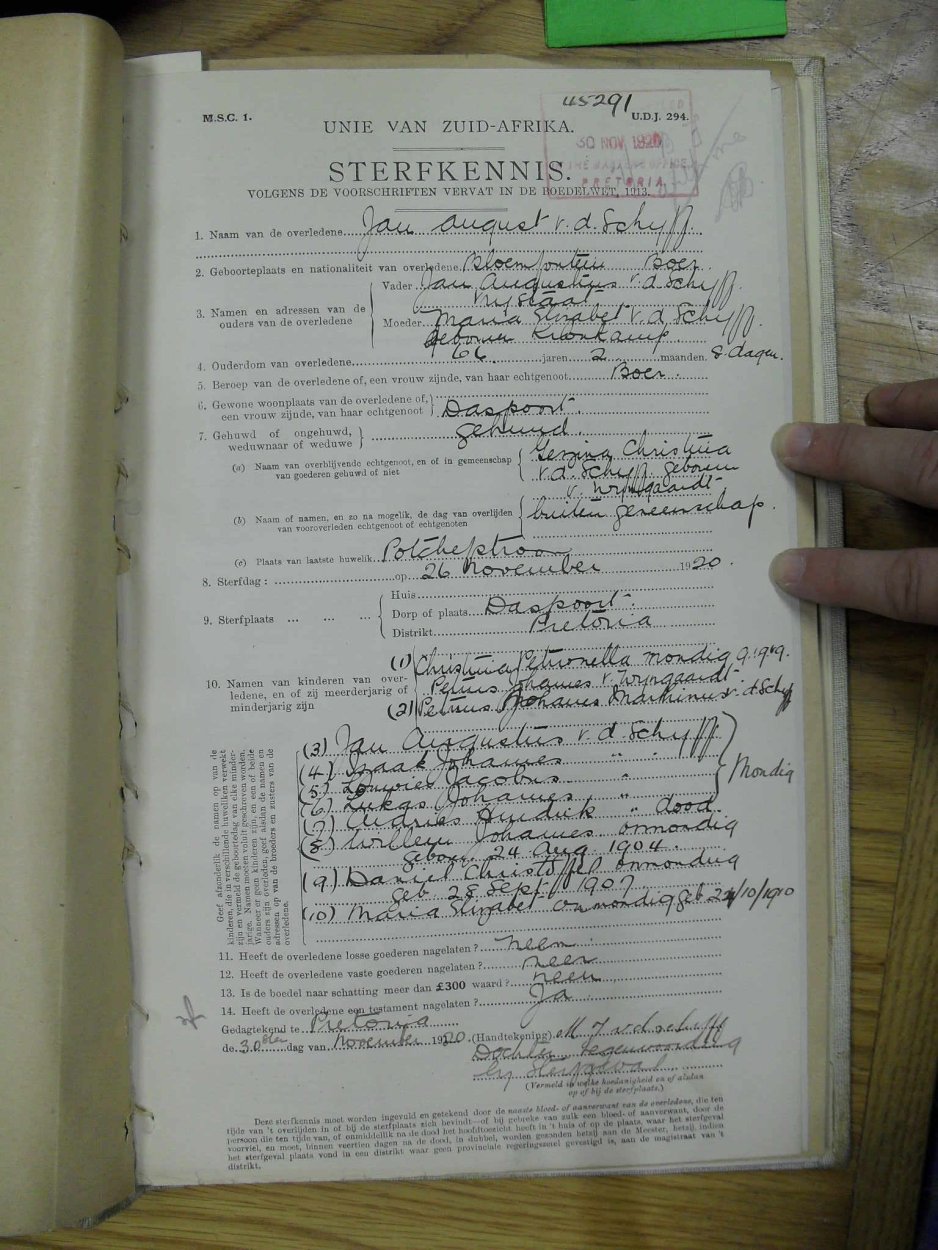 45291
M.S.C. 1.
U.D.J. 294.
UNIE VAN ZUID-AFRIKA.
30 NOV 1920
THE MASTERS OFFICE
PRETORIA
STERFKENNIS.
VOLGENS DE VOORSCHRIFTEN VERVAT IN DE BOEDELWET, 1913.
1. Naam van de overledene Jan August v. d. Schyff.
2. Geboorteplaats en nationaliteit van overledene. Bloemfontein Boer.
3. Namen en adressen van de ouders van de overledene
Vader Jan Augustius v. d. Schyff.
Vrijstaat.
Moeder Maria Elizabet v. d. Schyff.
geboren Kronkamp.
4. Ouderdom van overledene 66 jaren 2 maanden. 8 dagen.
5. Beroep van de overledene of, een vrouw zijnde, van haar echtgenoot Boer.
6. Gewone woonplaats van de overledene of, een vrouw zijnde, van haar echtgenoot Daspoort.
7. Gehuwd of ongehuwd, weduwnaar of weduwe gehuwd.
(a) Naam van overblijvende echtgenoot, en of in gemeenschap van goederen gehuwd of niet
Gezina Christina
v. d. Schyff. geboren
v. Wyngaardt
(b) Naam of namen, en zo na mogelik, de dag van overlijden van vooroverleden echtgenoot of echtgenoten
buiten gemeenschap.
(c) Plaats van laatste huwelik. Potchefstroom
8. Sterfdag : op 26 November 1920.
9. Sterfplaats ... ... ...
Huis
Dorp of plaats Daspoort.
Distrikt Pretoria
10. Namen van kinderen van overledene, en of zij meerderjarig of minderjarig zijn
(1) Christina Petronella mondig 9.1919.
Petrus Johannes v. Wyngaardt.
(2) Petrus Johannes Marthinus v. d. Schyff
(3) Jan Augustius v. d. Schyff.
(4) Izaak Johannes " "
(5) Louwies Jacobus "
(6) Lukas Johannes "
Mondig
(7) Andries Hendrik " dood.
(8) Willem Johannes onmondig
gebor. 24 Aug. 1904.
(9) Daniel Christoffel onmondig
geb 28 Sept. 1907
(10) Maria Elizabet onmondig geb 24/10/1910
Geef afzonderlik de namen op van de kinderen, die in verschillende huweliken verwekt zijn en vermeld de geboortedag van elke minderjarige. Namen moeten voluit geschreven worden. Wanneer er geen kinderen zijn, en een of beide ouders zijn overleden, geef alsdan de namen en adressen op van de broeders en zusters van de overledene.
11. Heeft de overledene losse goederen nagelaten ? neen.
12. Heeft de overledene vaste goederen nagelaten ? neen
13. Is de boedel naar schatting meer dan £300 waard ? neen
14. Heeft de overledene een testament nagelaten ? Ja
Gedagtekend te Pretoria
de 30sten dag van November 1920. (Handtekening) M J v d schyff
Dochter tegenwoordig
by Sterfgeval
(Vermeld in welke hoedanigheid en of alsdan
op of bij de sterfplaats.)
Deze sterfkennis moet worden ingevuld en getekend door de naaste bloed- of aanverwant van de overledene, die ten
tijde van 't overlijden in of bij de sterfplaats zich bevindt—of bij gebreke van zulk een bloed- of aanverwant, door de
persoon die ten tijde van, of onmiddellik na de dood het hoofdtoezicht heeft in 't huis of op de plaats, waar het sterfgeval
voorviel, en moet, binnen veertien dagen na de dood, in dubbel, worden gezonden hetzij aan de Meester, hetzij, indien
het sterfgeval plaats vond in een distrikt waar geen provinciale regeringszetel gevestigd is, aan de magistraat van 't
distrikt.